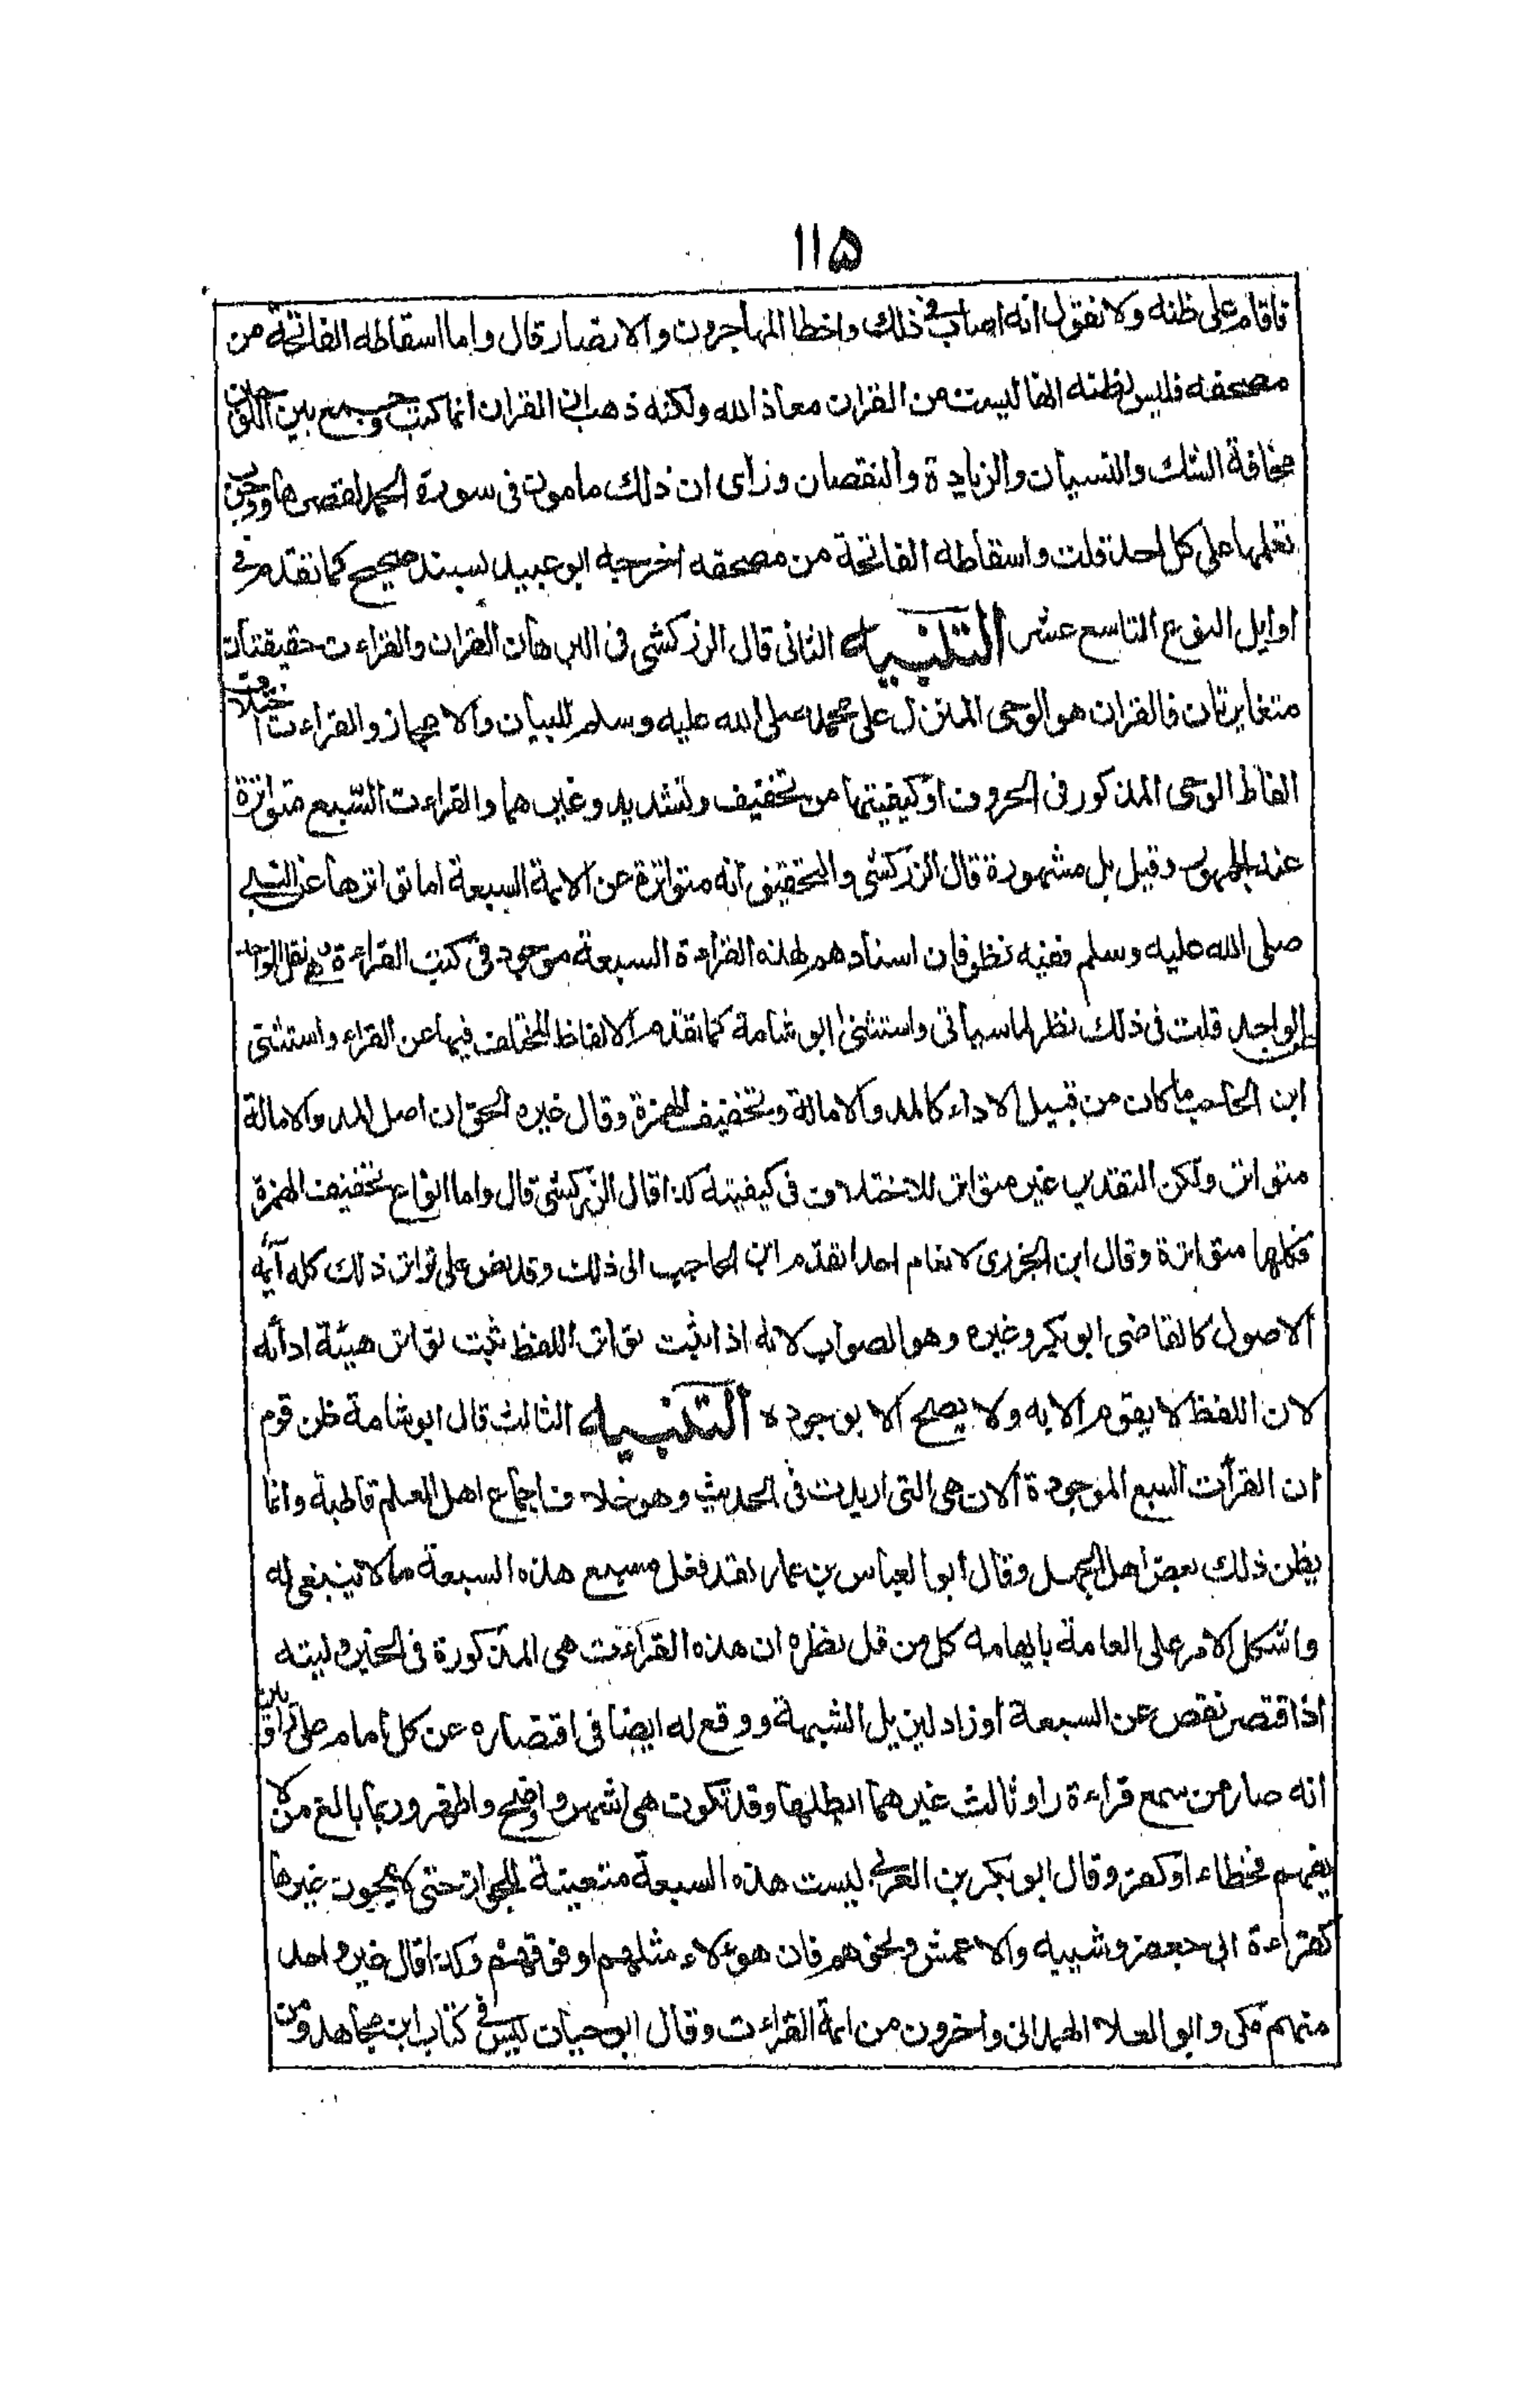 ١١٥
فاقام على ظنه ولا نقول انه اصاب فى ذلك واخطا المهاجرون والانصار قال واما اسقاطه الفاتحة من
مصحفه فليس لظنه انها ليست من القران معاذ الله ولكنه ذهب الى ان القران انما كتب وجمع بين اللوحين
مخافة الشك والنسيان والزيادة والنقصان وراى ان ذلك مامون فى سورة الحمد لقصرها ووجوب
تعلمها على كل احد قلت واسقاطه الفاتحة من مصحفه اخرجه ابو عبيد بسند صحيح كما تقدم فى
اوايل النوع التاسع عشر التنبيه الثانى قال الزركشى فى البرهان القران والقراءت حقيقتان
متغايرتان فالقران هو الوحى المنزل على محمد صلى الله عليه وسلم للبيان والاعجاز والقراءت اختلاف
الفاظ الوحى المذكور فى الحروف او كيفيتها من تخفيف وتشديد وغيرهما والقراءت السبع متواترة
عند الجمهور وقيل بل مشهورة قال الزركشى والتحقيق انه متواترة عن الايمة السبعة اما تواترها عن النبى
صلى الله عليه وسلم ففيه نظر فان اسنادهم لهذه القراءة السبعة موجود فى كتب القراءة وهى نقل الواحد
عن الواحد قلت فى ذلك نظر لما سياتى واستثنى ابو شامة كما تقدم الالفاظ المختلف فيها عن القراء واستثنى
ابن الحاجب ما كان من قبيل الاداء كالمد والامالة وتخفيف الهمزة وقال غيره الحق ان اصل المد والامالة
متواتر ولكن التقدير غير متواتر للاختلاف فى كيفيته كذا قال الزركشى قال واما انواع تخفيف الهمزة
فكلها متواترة وقال ابن الجزرى لا نعلم احدا تقدم ابن الحاجب الى ذلك وقد نص على تواتر ذلك كله آئمه
الاصول كالقاضى ابو بكر وغيره وهو الصواب لانه اذا ثبت تواتر اللفظ ثبت تواتر هيئة ادائه
لان اللفظ لا يقوم الا به ولا يصلح الا بوجوده التنبيه الثالث قال ابو شامة ظن قوم
ان القرآت السبع الموجودة الان هى التى اريدت فى الحديث وهو خلاف اجماع اهل العلم قاطبة وانما
يظن ذلك بعض اهل الجهل وقال ابو العباس بن عمار لقد فعل مسبع هذه السبعة ما لا ينبغى له
واشكل الامر على العامة بايهامه كل من قل نظره ان هذه القراءت هى المذكورة فى الخبر وليته
اذا قتصر نقص عن السبعة او زاد ليزيل الشبهة ووقع له ايضا فى اقتصاره عن كل امام على راويين
انه صار من سمع قراءة راو ثالث غيرهما ابطلها وقد تكون هى اشهر واصلح واظهر وربما بالغ من لا
يفهم فخطاء او كفر وقال ابو بكر بن العربى ليست هذه السبعة متعينة للجواز حتى لا يجوز غيرها
كقراءة ابى جعفر وشيبه والاعمش ونحوهم فان هؤلاء مثلهم او فوقهم وكذا قال غير واحد
منهم مكى وابو العلاء الهمدانى واخرون من ائمة القراءت وقال ابو حيان ليس فى كتاب ابن مجاهد ومن